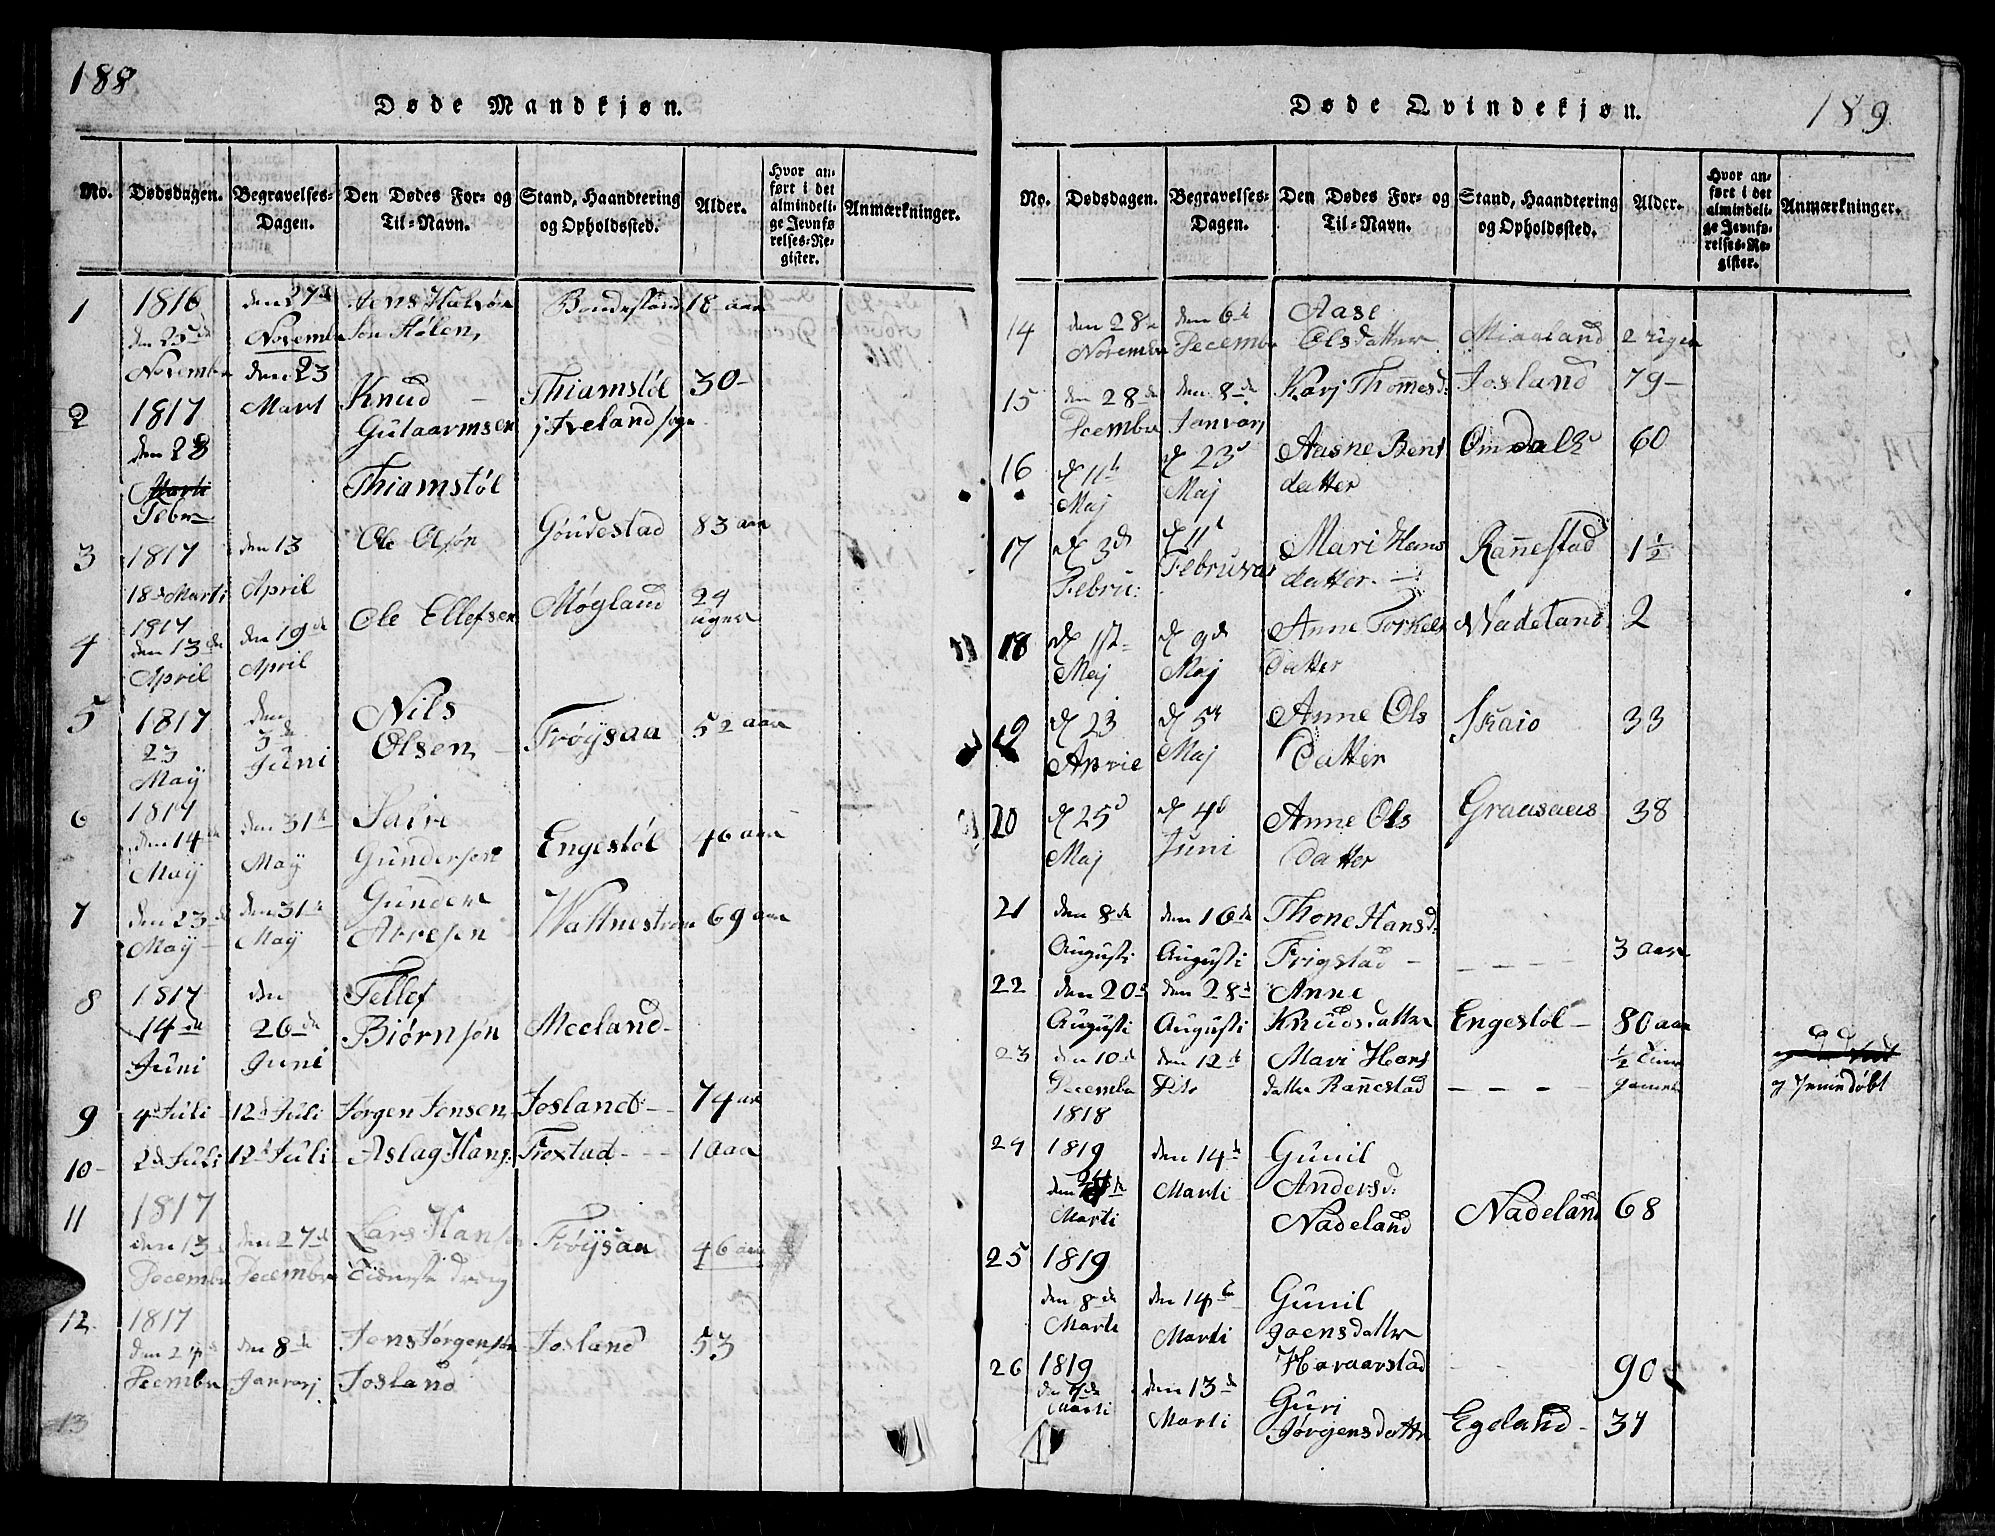 188
Døde Mandkjøn.
No.
Dødsdagen.
Begravelses-
Dagen.
Den Dødes For- og
Til-Navn.
Stand, Haandtering
og Opholdssted.
Alder.
Hvor an-
ført i det
almindeli-
ge Jevnfø
relses-Re-
gister.
Anmærkninger.
1
1816
den 25de
Novembr
den 27de
Novembr
Søn Hølen
18 aar
2
1817
den 28
Marti
Febru
den 23
Mart
Knud
Gulaarmsen
Thiamstøl
Thiamstøl
j Iveland sogn
30-
3
1817
18de Marti
den 13
April
Ole Olsøn
83 aar
4
1817
den 13de
April
den 19de
April
Ole Ellefsen
Møgland
24
uger
5
1817
23
Maÿ
den
3de
Juni
Nils
Olsen
Frøÿsaa
52 aar
6
1817
den 14de
Maÿ
den 31te
Maÿ
Gundersøn
Engestøl
46 aar
7
den 23de
Maÿ
den 31te
Maÿ
Gunder
69 aar
8
1817
14de
Juni
den
26de
Juni
Tellef
Biørnsøn
Meeland
9
4d Juli
12d Juli
Jørgen Jensen
Josland
74 aar
10
2d Juli
12d Juli
Aslag Hans:
1 aar
11
1817
den 13de
Decembr
den 27de
Decembr
Lars Hans
Tieneste dreng
Frøÿsaa
46 aar
12
1817
den 24de
Decembr
den 8de
Janvarj
Jens Jørgensøn
Josland
Josland
53
13
Døde Qvindekjøn.
189
No.
Dødsdagen.
Begravelses-
Dagen.
Den Dødes For- og
Til-Navn.
Stand, Haandtering
og Opholdssted.
Alder.
Hvor an-
ført i det
almindeli-
ge Jevnfø-
relses-Re-
gister.
Anmærkninger.
14
den 28de
Novembr
den 6te
Decembr
Aase
Olsdatter
2 uger
15
den 28de
Decembr
den 8de
Janvarj
Karj Thomesd:
Josland
79-
16
d 11te
Maj
d 23d
Maj
Aasne Bent
datter
60
17
d 3de
Febru:
d 11t
Februar
Mari Hans
datter
Rannestad
1½
18
Maj
d 9de
Maj
Anne Torkels
datter
Nadeland
2
19
d 23
April
d 5t
Maj
Anne Ols
datter
Skaio
33
20
d 25d
Maj
d 4d
Juni
Anne Ols
datter
38
21
den 8de
Augusti
den 16de
Augusti
Thone Hansd:
Frigstad
3 aar
22
den 20de
Augusti
den 28de
Augusti
Anne
Knudsdatter
Engestøl
80 aar
23
den 10de
Decembr
1818
den 12te
Dito
Mari Hans
datter Rannestad
½ time
gammel
g
j
24
1819
Marti
den 14de
Marti
Gunil
Andersd:
Nadeland
Nadeland
68
25
1819
den 8de
Marti
den 14de
Marti
Gunil
Joensdatter
Haraarstad
90
26
1819
Marti
den 13de
Marti
Guri
Jørgensdatter
Egeland
37